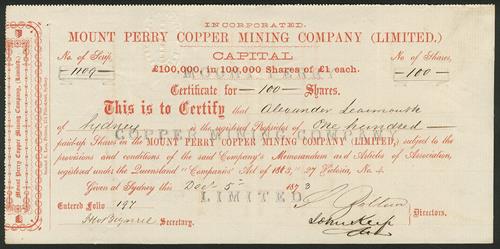 INCORPORATED.
MOUNT PERRY COPPER MINING COMPANY (LIMITED.)
No. of Scrip,
CAPITAL
No. of Shares,
1109
£100,000, in 100,000 Shares of £1 each.
100
MOUNT PERRY
Certificate for 100 Shares.
This is to Certify that Alexander Learmonth
of Sydney is the registered Proprietor of One hundred
COPPER MINING COMPANY
paid-up Shares in the MOUNT PERRY COPPER MINING COMPANY (LIMITED,) subject to the
provisions and conditions of the said Company's Memorandum and Articles of Association,
registered under the Queensland "Companies' Act of 1863," 27 Victoria, No. 4.
Given at Sydney this Dec 5th 1873
LIMITED
Entered Folio 197
Secretary.
Directors.
Mount Perry Copper Mining Company, (Limited.)